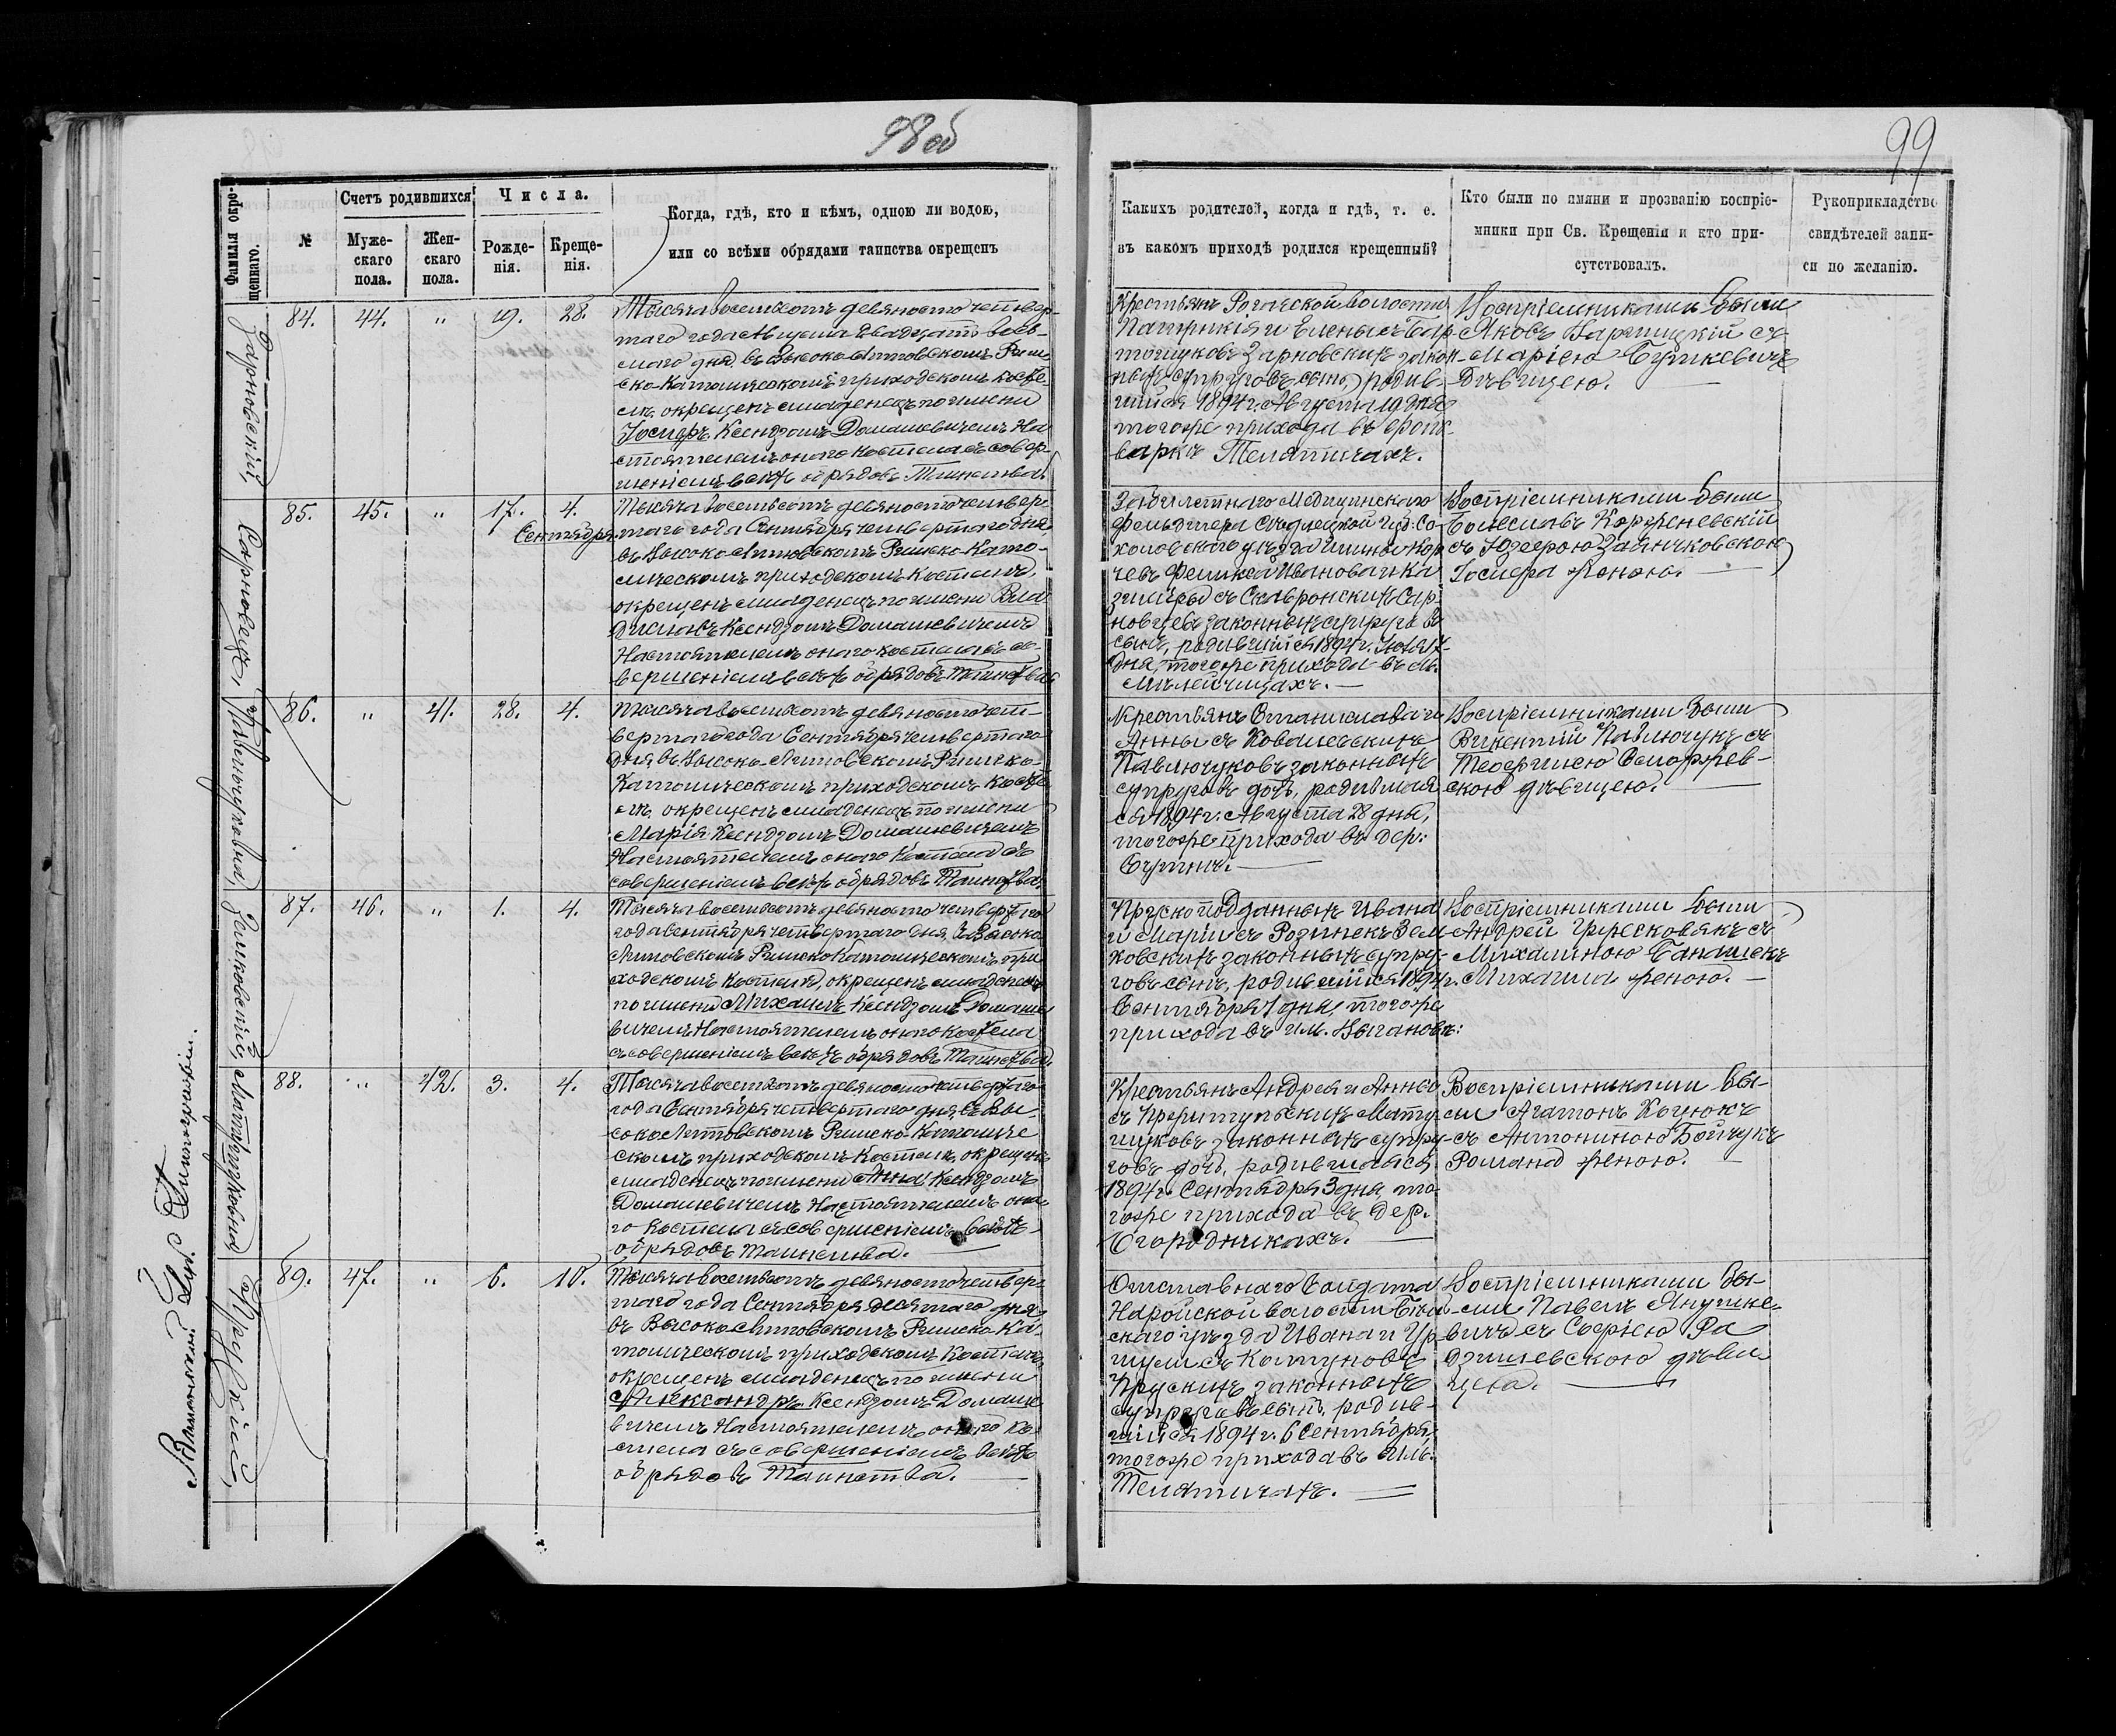 98 об
99
Фамилія окре-
щеннаго.
№
Счетъ родившихся
Муже-
скаго
пола.
Жен-
скаго
пола.
Числа.
Рожде-
нія.
Креще-
нія.
Когда, гдѣ, кто и кѣмъ, одною ли водою,
или со всѣми обрядами таинства окрещенъ
Какихъ родителей, когда и гдѣ, т. е.
въ какомъ приходѣ родился крещенный?
Кто были по имяни и прозванію воспріе-
мники при Св. Крещеніи и кто при-
сутствовалъ.
Рукоприкладство
свидѣтелей запи-
си по желанію.
Зарновскій
84. 44. " 19. 28.
Тысяча восемьсотъ девяносто четвер-
таго года Августа двадцать вось-
маго дня въ Высоко-Литовскомъ Рим-
ско-Католическомъ приходскомъ косте-
лѣ окрещенъ младенецъ по имени
Іосифъ Ксендзомъ Домашевичемъ На-
стоятелемъ онаго костела съ совер-
шеніемъ всѣхъ обрядовъ Таинства.
Крестьянъ Рогачской волости
Патрикія и Елены съ Бар-
тошуковъ Зарновскихъ закон-
ныхъ супруговъ сынъ, родив-
шійся 1894 г. Августа 19 дня
тогоже прихода въ фоль-
варкѣ Телятичахъ.
Воспріемниками были
Яковъ съ
Маріею Буткевичъ
Дѣвицею.
Сарновецъ
85. 45. " 17. 4.
Сентября
Тысяча восемьсотъ девяносто четвер-
таго года Сентября четвертаго дня
въ Высоко-Литовскомъ Римско-Като-
лическомъ приходскомъ Костелѣ,
окрещенъ младенецъ по имени Вла-
диславъ Ксендзомъ Домашевичемъ
Настоятелемъ онаго костела съ со-
вершеніемъ всѣхъ обрядовъ Таинства
Медицинскаго
Фельдшера Сѣдлецкой губ. Со-
коловскаго уѣзда
Феликса Иванова и Ка-
зиміры съ Скавронскихъ Сар-
новцевъ законныхъ супруговъ
сынъ, родившійся 1894 г. Іюля 17
дня тогоже прихода въ м.
Милейчицахъ.
Воспріемниками были
Болеславъ Корженевскій
съ Юзефою Заянчковскою
Іосифа женою.
Павлючуковна
86. " 41. 28. 4.
Тысяча восемьсотъ девяносто чет-
вертаго года Сентября четвертаго
дня въ Высоко-Литовскомъ Римско-
Католическомъ приходскомъ косте-
лѣ окрещенъ младенецъ по имени
Марія Ксендзомъ Домашевичемъ
Настоятелемъ онаго Костела съ
совершеніемъ всѣхъ обрядовъ Таинства.
Крестьянъ Станислава и
Анны съ Ковалевскихъ
Павлючуковъ законныхъ
супруговъ дочь, родившая-
ся 1894 г. Августа 28 дня,
тогоже прихода въ дер.
Воспріемниками были
Викентій Павлючукъ съ
Теофилею
скою дѣвицею.
Зелковскій
87. 46. " 1. 4.
Тысяча восемьсотъ девяносто четвертаго
года Сентября четвертаго дня, въ Высоко-
Литовскомъ Римско Католическомъ при-
ходскомъ Костелѣ, окрещенъ младенецъ
по имени Михаилъ Ксендзомъ Домаше-
вичемъ Настоятелемъ онаго Костела
съ совершеніемъ всѣхъ обрядовъ Таинства.
Пруско подданныхъ Ивана
и Маріи съ Розинекъ Зел-
ковскихъ законныхъ супру-
говъ сынъ, родившійся 1894 г.
Сентября 1 дня, тогоже
прихода въ им.
Воспріемниками были
Андрей съ
Михалиною Банашекъ
Михаила женою.
Матушуковна
88. " 42. 3. 4.
Тысяча восемьсотъ девяносто четвертаго
года Сентября четвертаго дня, въ Вы-
соко Литовскомъ Римско-Католиче-
скомъ приходскомъ Костелѣ окрещенъ
младенецъ по имени Анна Ксендзомъ
Домашевичемъ Настоятелемъ она-
го Костела съ совершеніемъ всѣхъ
обрядовъ Таинства.
Крестьянъ Андрея и Анны
съ Мату-
шуковъ законныхъ супру-
говъ дочь, родившаяся
1894 г. Сентября 3 дня, то-
гоже прихода въ дер.
Огородникахъ.
Воспріемниками бы-
ли Агатонъ Коцюкъ
съ Антониною Бойчукъ
Романа женою.
Прускій
89. 47. " 6. 10.
Тысяча восемьсотъ девяносто четвер-
таго года Сентября десятаго дня
въ Высоко-Литовскомъ Римско-Ка-
толическомъ приходскомъ Костелѣ
окрещенъ младенецъ по имени
Александръ Ксендзомъ Домаше-
вичемъ Настоятелемъ онаго Ко-
стела съ совершеніемъ всѣхъ
обрядовъ Таинства.
Отставнаго Солдата
Наройской волости Бѣль-
скаго уѣзда Ивана и Ур-
шули съ
Прускихъ законныхъ
супруговъ сынъ, родив-
шійся 1894 г. 6 Сентября,
тогоже прихода въ им.
Телятичахъ.
Воспріемниками бы-
ли Павелъ Янушке-
вичъ съ Софіею Ра-
дзишевскою дѣви-
цею.